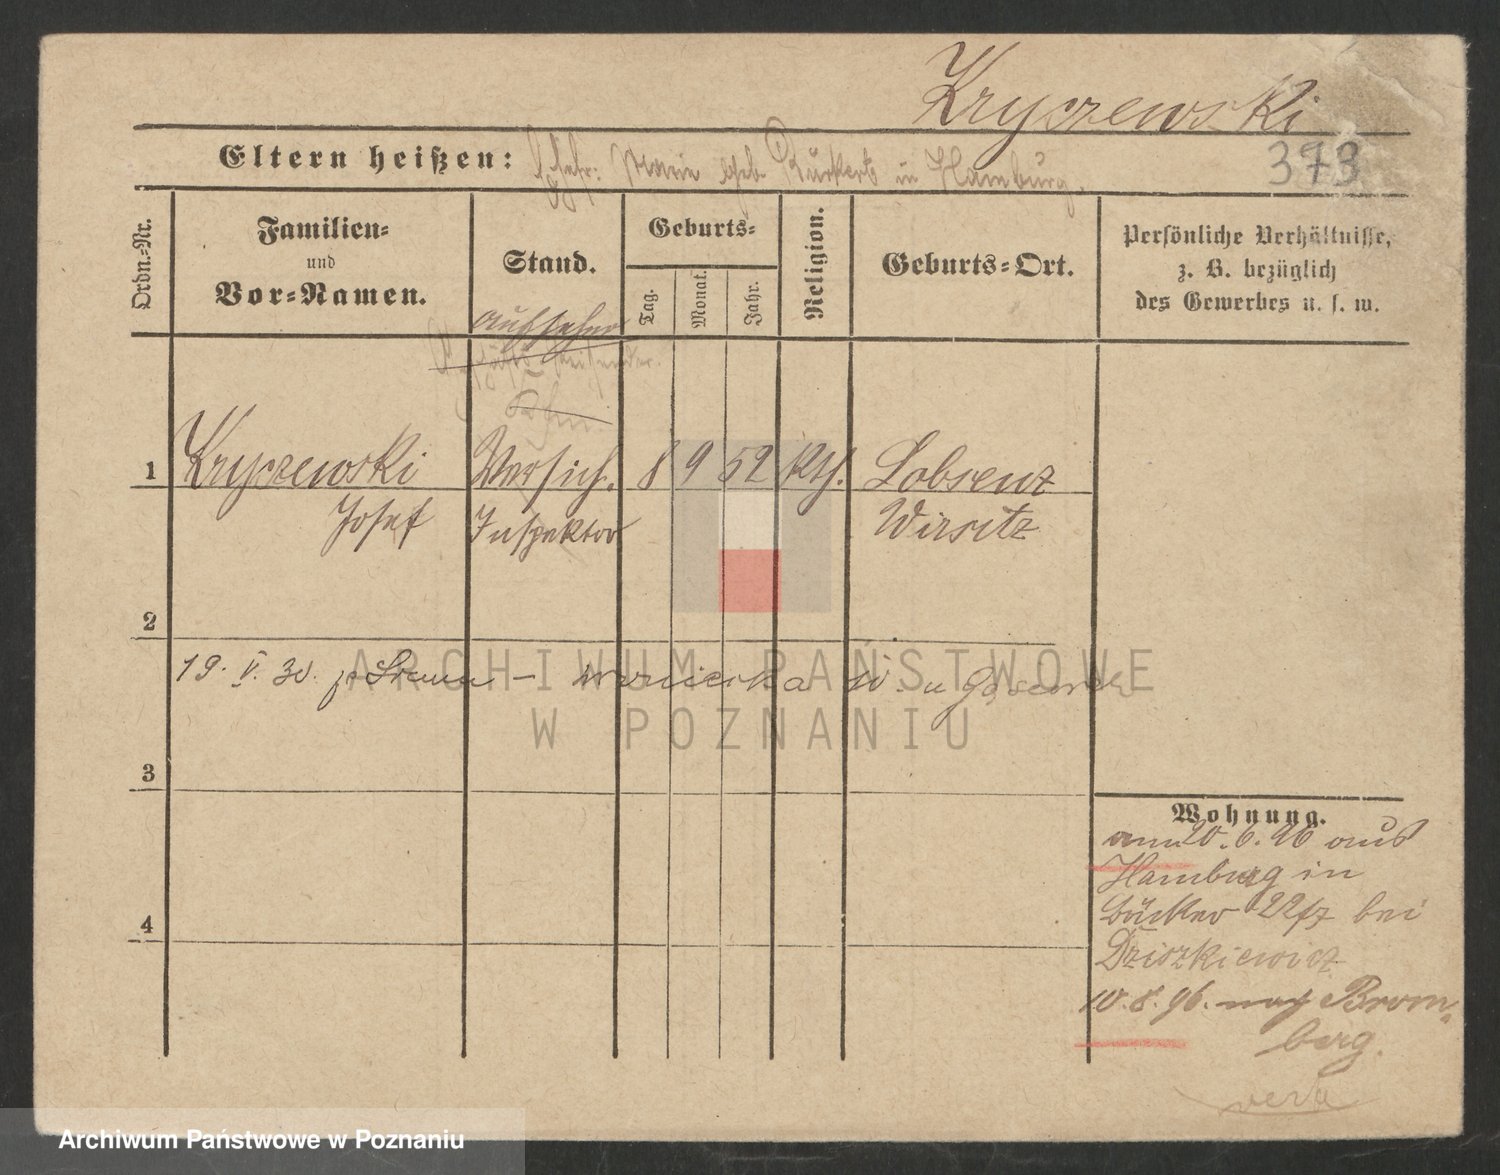 Kryszewski
373
Eltern heißen: Marie geb. in Hamburg.
Ordn.-Nr.
Familien-
und
Vor-Namen.
Stand.
Geburts-
Tag.
Monat.
Jahr.
Religion.
Geburts-Ort.
Persönliche Verhältnisse,
z. B. bezüglich
des Gewerbes u. s. w.
Aufseher
1 Kryszewski Versich. 8 9 52 Kth. Lobsenz
Josef Inspektor Wirsitz
2
19. V. 30.
ARCHIWUM PAŃSTWOWE
W POZNANIU
3
Wohnung.
am 20.6.96 aus
Hamburg in
22 bei
Dziszkiewicz
4
10.8.96. nach Brom-
berg.
Archiwum Państwowe w Poznaniu